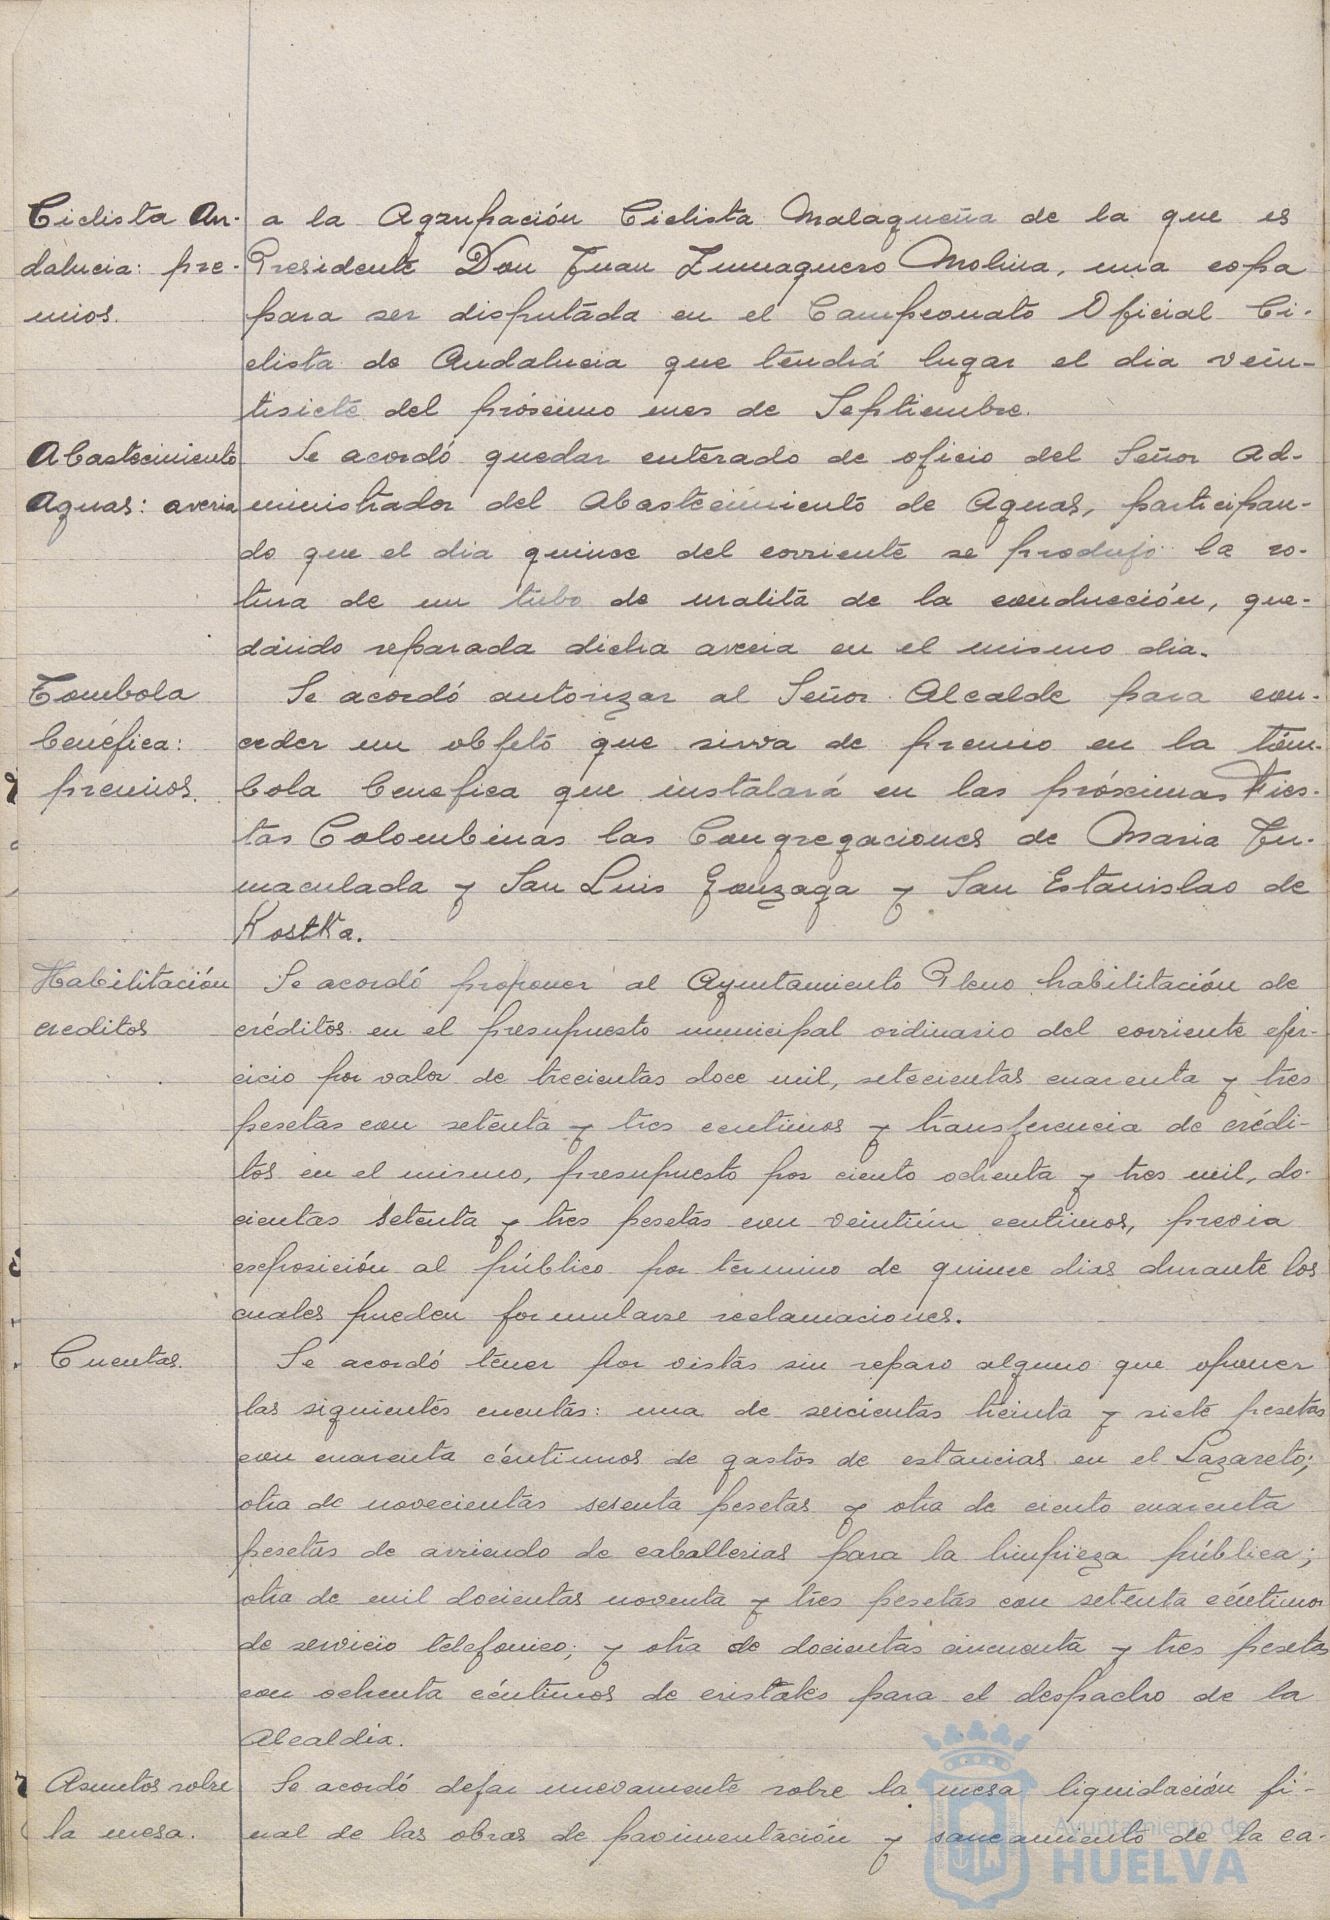 Ciclista An-
dalucia: pre-
mios.
a la Agrupación Ciclista Malagueña de la que es
Presidente Don Juan Zumaquero Molina, una copa
para ser disputada en el Campeonato Oficial Ci-
clista de Andalucia que tendrá lugar el dia vein-
tisiete del próximo mes de Septiembre.
Abastecimiento
Aguas: averia
Se acordó quedar enterado de oficio del Señor Ad-
ministrador del Abastecimiento de Aguas, participan-
do que el dia quince del corriente se produjo la ro-
tura de un tubo de uralita de la conducción, que-
dando reparada dicha averia en el mismo dia.
Tombola
benéfica:
premios.
Se acordó autorizar al Señor Alcalde para con-
ceder un objeto que sirva de premio en la tóm-
bola benefica que instalará en las próximas Fies-
tas Colombinas las Congregaciones de Maria In-
maculada y San Luis Gonzaga y San Estanislao de
Kostka.
Habilitación
creditos
Se acordó proponer al Ayuntamiento Pleno habilitación de
créditos en el presupuesto municipal ordinario del corriente ejer-
cicio por valor de trecientas doce mil, setecientas cuarenta y tres
pesetas con setenta y tres centimos y transferencia de crédi-
tos en el mismo, presupuesto por ciento ochenta y tres mil, do-
cientas setenta y tres pesetas con veintiún centimos, previa
exposición al público por termino de quince dias durante los
cuales pueden formularse reclamaciones.
Cuentas.
Se acordó tener por vistas sin reparo alguno que oponer
las siguientes cuentas: una de seicientas treinta y siete pesetas
con cuarenta céntimos de gastos de estancias en el Lazareto;
otra de novecientas sesenta pesetas y otra de ciento cuarenta
pesetas de arriendo de caballerias para la limpieza pública;
otra de mil docientas noventa y tres pesetas con setenta céntimos
de servicio telefonico; y otra de docientas cincuenta y tres pesetas
con ochenta céntimos de cristales para el despacho de la
Alcaldia.
Asuntos sobre
la mesa.
Se acordó dejar nuevamente sobre la mesa liquidación fi-
nal de las obras de pavimentación y saneamiento de la ca-
Ayuntamiento de
HUELVA